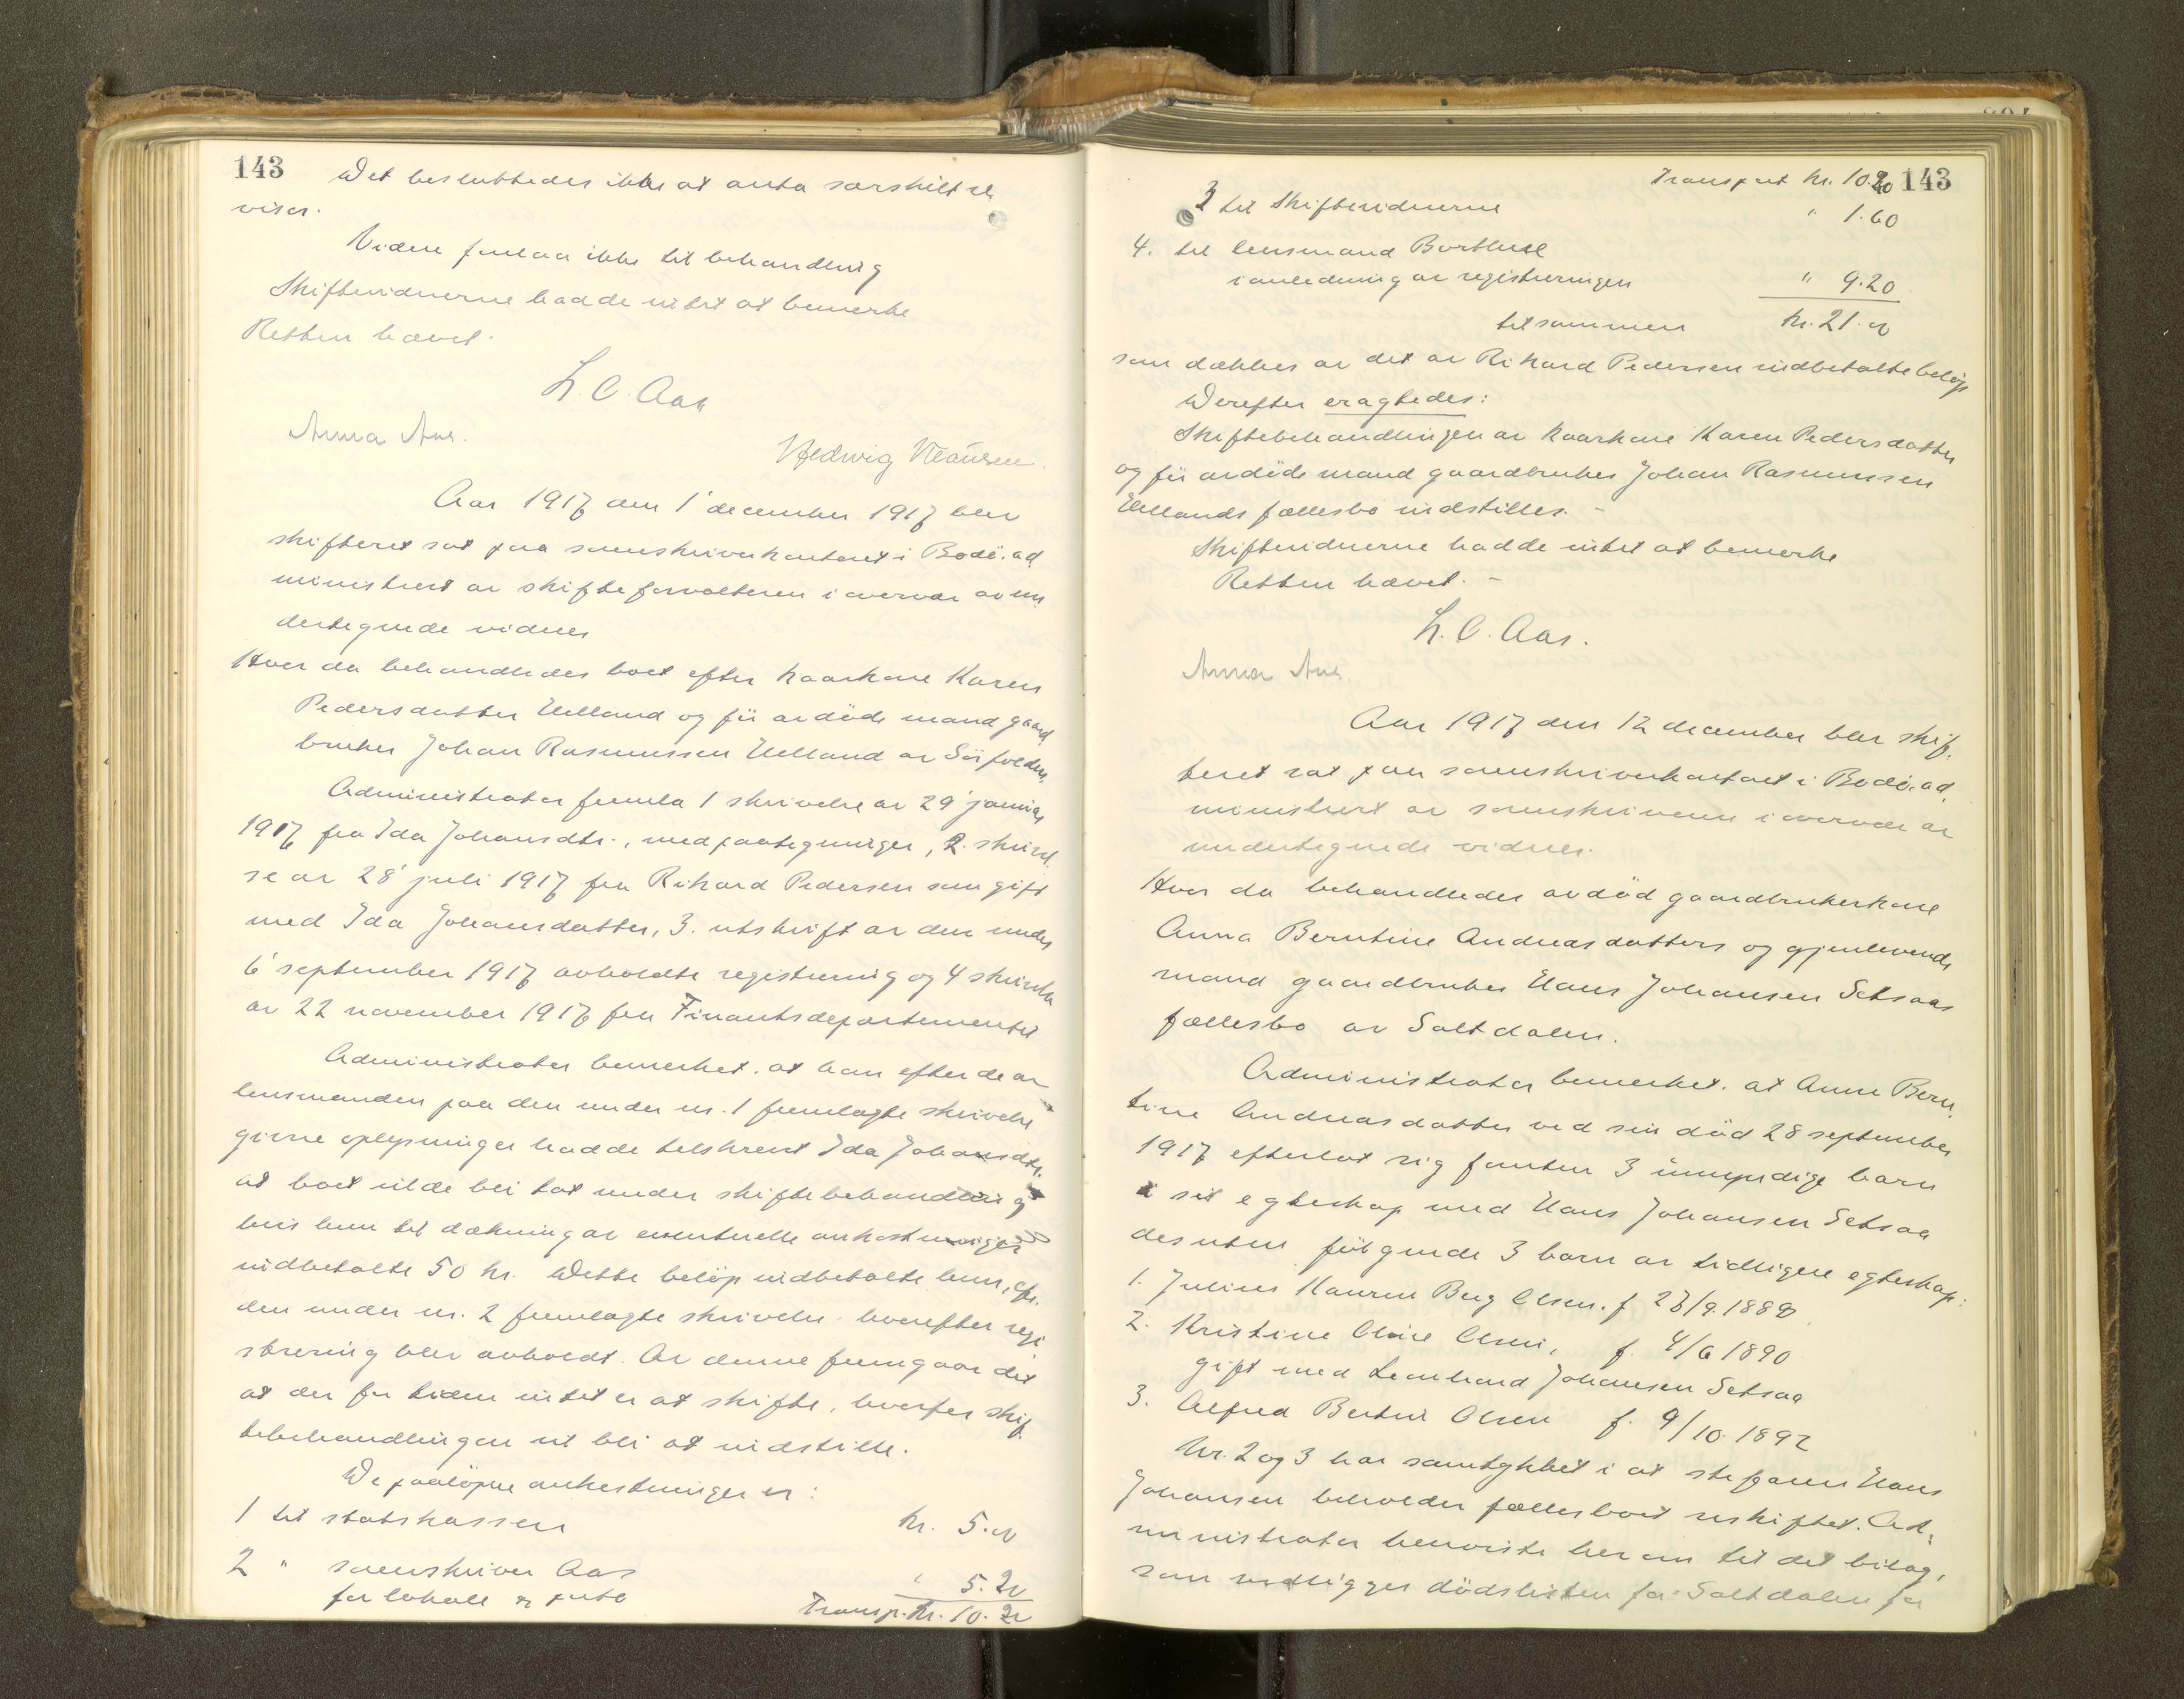 143
Det besluttedes ikke at anta særskilt re
visor.
Videre forelaa ikke til behandling
Skiftevidnerne hadde intet at bemerke
Retten hævet.
L. C. Aas
Anna Aas.
Hedwig Klaüsen.
Aar 1917 den 1' december 1917 blev
skifteret sat paa sorenskriverkontoret i Bodö, ad
ministrert av skifteforvalteren i overvær av un
dertegnede vidner
Hvor da behandledes boet efter kaarkone Karen
Pedersdatter Helland og för avdöde mand gaard
bruker Johan Rasmussen Helland av Sörfolden.
Administrator fremla 1 skrivelse av 29' januar
1917 fra Ida Johansdtr., med paategninger, 2. skrivel
se av 28' juli 1917 fra Rikard Pedersen som gift
med Ida Johansdatter, 3. utskrift av den under
6' september 1917 avholdte registrering og 4 skrivelse
av 22 november 1917 fra Finantsdepartementet
Administrator bemerket, at han efter de av
lensmanden paa den under nr. 1 fremlagte skrivelse
givne oplysninger hadde tilskrevet Ida Johansdtr.
at boet vilde bli tat under skiftebehandling
hvis hun til dækning av eventuelle omkostninger
indbetalte 50 kr. Dette belöp indbetalte hun, cfr.
den under nr. 2 fremlagte skrivelse, hvorefter regi
strering blev avholdt. Av denne fremgaar det
at der for tiden intet er at skifte, hvorfor skif
tebehandlingen vil bli at indstille.
De paalöpne omkostninger er:
1 til statskassen kr. 5.00
2 " sorenskriver Aas
for lokale og porto " 5.20
Transp. kr. 10.20
143
Transport kr. 10.20
3 til Skiftevidnerne " 1.60
4. til lensmand
i anledning av registreringen " 9.20
tilsammen kr. 21.00
som dækkes av det av Rikard Pedersen indbetalte belöp
Derefter eragtedes:
Skiftebehandlingen av kaarkone Karen Pedersdatter
og för avdöde mand gaardbruker Johan Rasmussen
Hellands fællesbo indstilles. -
Skiftevidnerne hadde intet at bemerke
Retten hævet. -
L. C. Aas.
Anna Aas.
Aar 1917 den 12 december blev skif
teret sat paa sorenskriverkontoret i Bodö, ad
ministrert av sorenskriveren i overvær av
undertegnede vidner.
Hvor da behandledes avdöd gaardbrukerkone
Anna Berntine Andreasdatters og gjenlevende
mand gaardbruker Hans Johansen Setsaas
fællesbo av Saltdalen.
Administrator bemerket, at Anna Bern
tine Andreasdatter ved sin död 28 september
1917 efterlot sig foruten 3 umyndige barn
i sit egteskap med Hans Johansen Setsaa
desuten fölgende 3 barn av tidligere egteskap:
1. Julius Berg Olsen, f 23/9.1888
2. Kristine Olsen, f. 4/6 1890
gift med Leonhard Johansen Setsaa
3. Alfred Bertin Olsen f. 9/10.1892
Nr. 2 og 3 har samtykket i at stefaren Hans
Johansen beholder fællesboet uskiftet. Ad-
ministrator henviste herom til det bilag,
som vedligger dödslisten for Saltdalen for